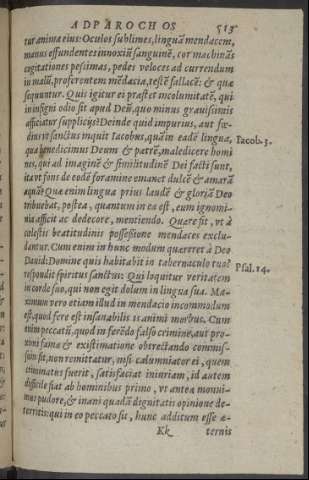 AD PAROCHOS 513
tur anima eius: Oculos sublimes, linguã mendacem,
manus effundentes innoxiũ sanguinẽ, cor machinãs
cogitationes pessimas, pedes veloces ad currendum
in malũ, proferentem mẽdacia, testẽ fallacẽ: & quæ
sequuntur. Quis igitur ei præstet incolumitatẽ, qui
in insigni odio sit apud Deũ, quo minus grauissimis
afficiatur supplicijs? Deinde quid impurius, aut fœ-
dius, vt sanctus inquit Iacobus, quàm eadẽ lingua,
Iacob. 3.
qua benedicimus Deum & patrẽ, maledicere homi
nes, qui ad imaginẽ & similitudinẽ Dei facti sunt,
ita vt fons de eodẽ foramine emanet dulcẽ & amarã
aquã? Quæ enim lingua prius laudẽ & gloriã Deo
tribuebat, postea, quantum in ea est, eum ignomi-
nia afficit ac dedecore, mentiendo. Quare fit, vt à
cælestis beatitudinis possessione mendaces exclu-
dantur. Cum enim in hunc modum quæreret à Deo
Dauid: Domine quis habitabit in tabernaculo tuo?
Psal. 14.
respondit spiritus sanctus: Qui loquitur veritatem
in corde suo, qui non egit dolum in lingua sua. Ma-
ximum vero etiam illud in mendacio incommodum
est, quod fere est insanabilis is animi morbus. Cum
enim peccatũ, quod in ferẽdo falso crimine, aut pro-
ximi fama & existimatione obtrectando commis-
sum sit, non remittatur, nisi calumniator ei, quem
criminatus fuerit, satisfaciat iniuriam, id autem
difficile fiat ab hominibus primo, vt antea monui-
mus pudore, & inani quadã dignitatis opinione de-
territis: qui in eo peccato sit, hunc additum esse æ-
Kk ternis